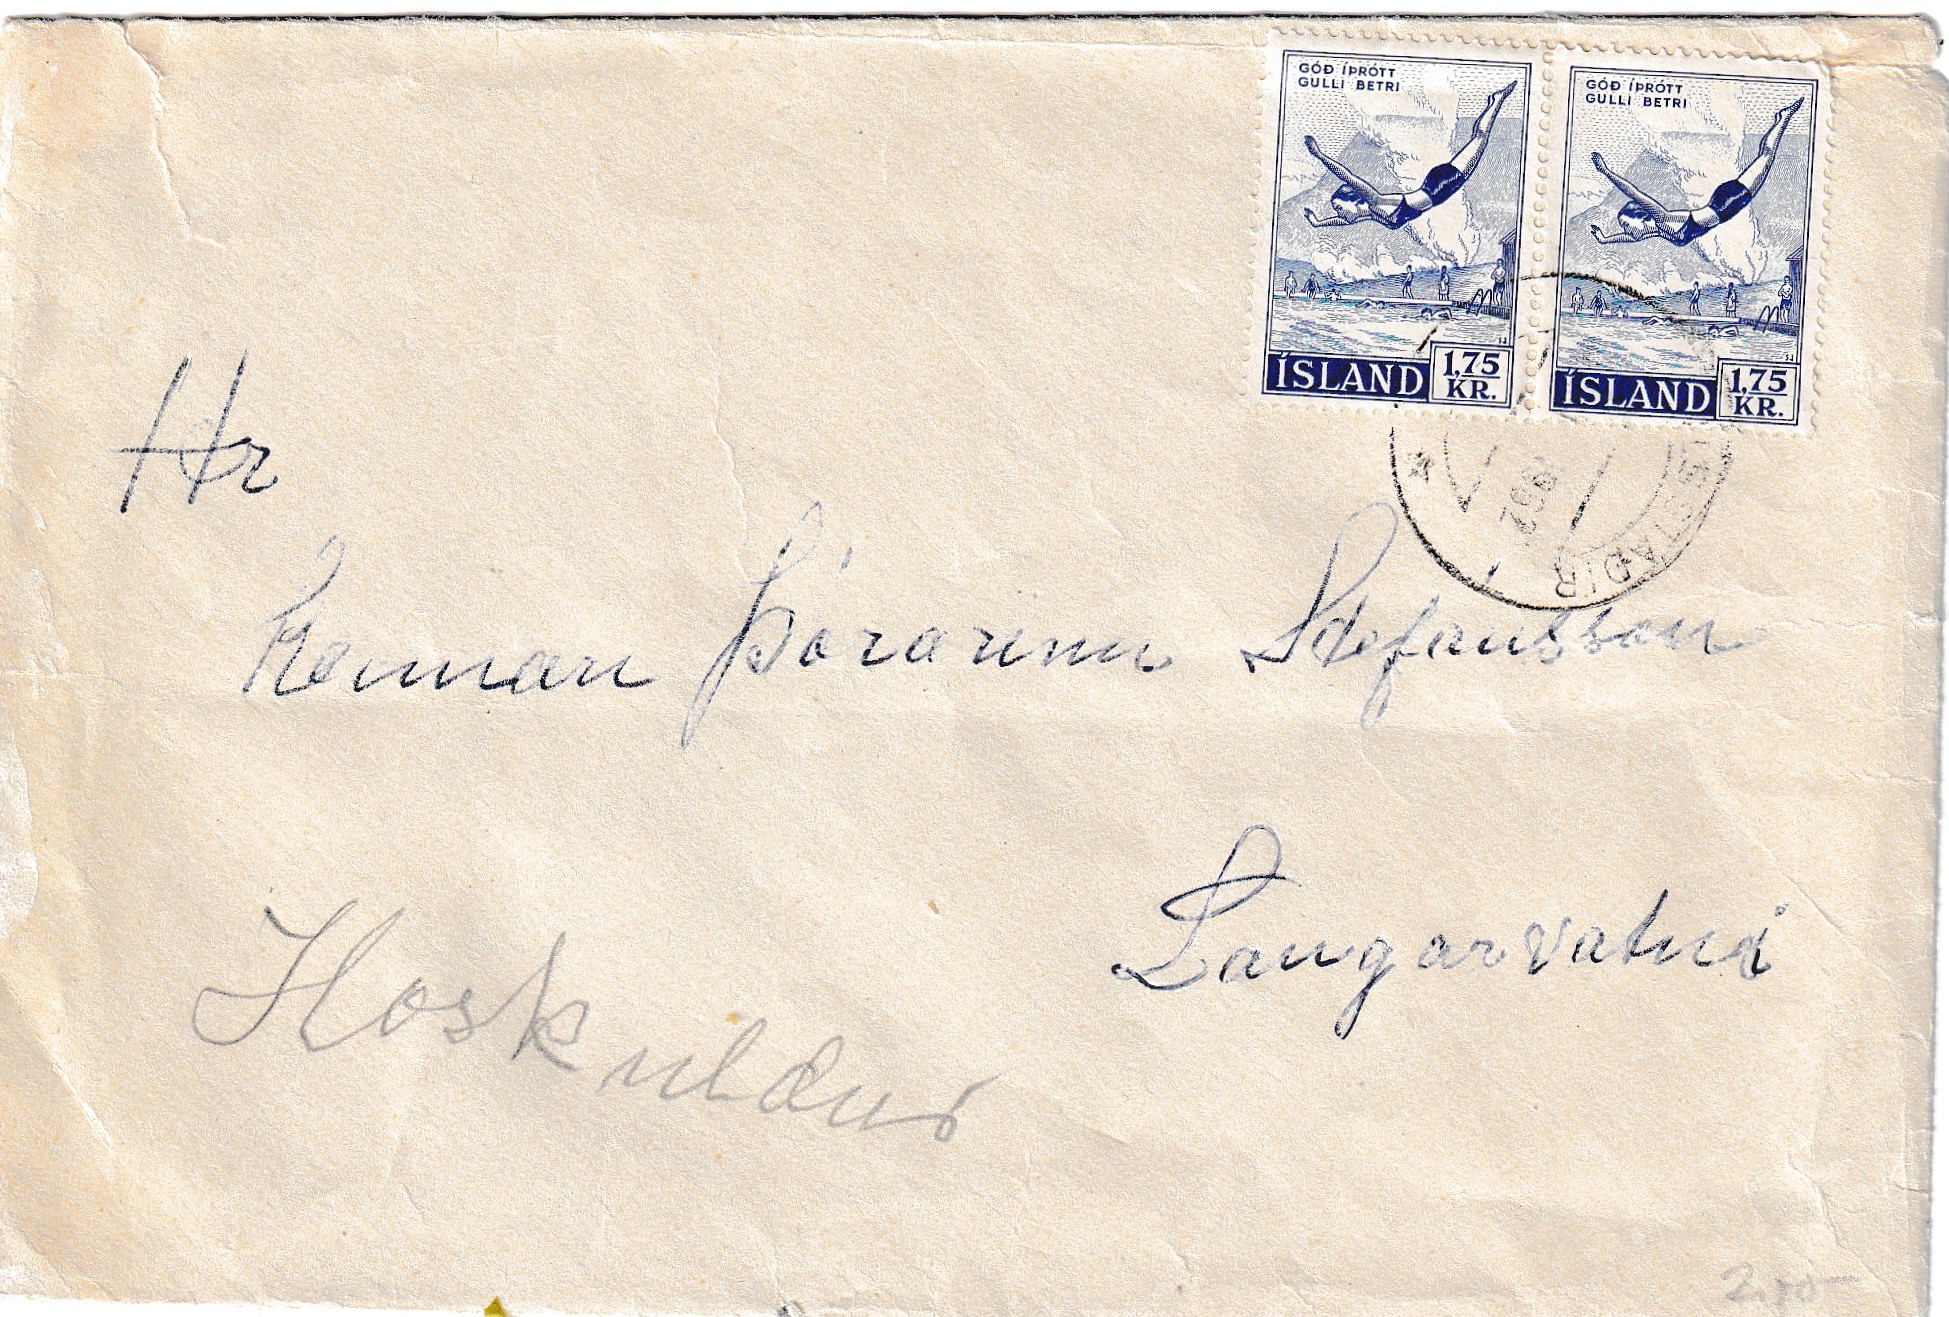 GÓÐ ÍÞRÓTT
GULLI BETRI
ÍSLAND 1,75 KR.
GÓÐ ÍÞRÓTT
GULLI BETRI
ÍSLAND 1,75 KR.
Hr
Kennari Þórarinn Stefánsson
Laugarvatni
Hoskuldur